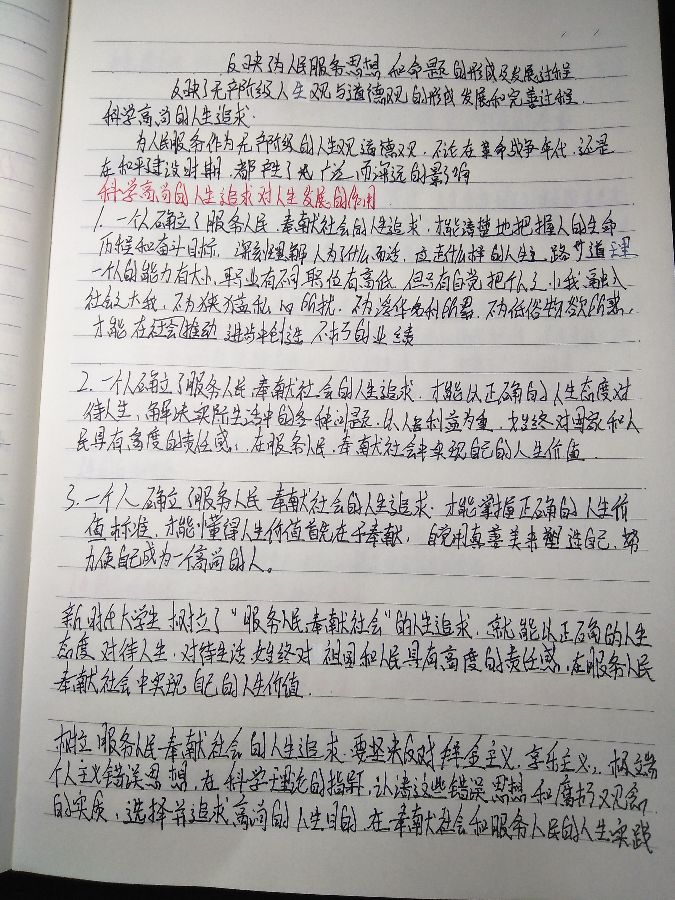 反映为人民服务思想和命题的形成及发展过程
反映了无产阶级人生观与道德观的形成发展和完善过程
科学高尚的人生追求.
为人民服务作为无产阶级的人生观道德观,不论在革命战争年代,还是
在和平建设时期,都产生了广泛而深远的影响
科学高尚的人生追求对人生发展的作用
1.一个人确立了服务人民、奉献社会的人生追求,才能清楚地把握人的生命
历程和奋斗目标,深刻理解人为了什么而活,应走什么样的人生之路等道理
一个人的能力有大小,职业有不同职位有高低,但只有自觉把个人之小我融入
社会之大我,不为狭隘私心所扰,不为浮华名利所累,不为低俗物欲所惑,
才能在社会推动进步中创造不朽的业绩
2.一个人确立了服务人民奉献社会的人生追求,才能以正确的人生态度对
待人生,解决实际生活中的各种问题,以人民利益为重,始终对国家和人
民具有高度的责任感,在服务人民,奉献社会中实现自己的人生价值.
3.一个人确立了服务人民奉献社会的人生追求.才能掌握正确的人生价
值标准,才能懂得人生价值首先在于奉献,自觉用真善美来塑造自己,努
力使自己成为一个高尚的人。
新时代大学生树立了"服务人民奉献社会"的人生追求,就能以正确的人生
态度对待人生,对待生活始终对祖国和人民具有高度的责任感,在服务人民
奉献社会中实现自己的人生价值.
树立服务人民奉献社会的人生追求.要坚决反对拜金主义,享乐主义,极端
个人主义错误思想,在科学理论的指导,认清这些错误思想和腐朽观念
的实质,选择并追求高尚的人生目的,在奉献社会和服务人民的人生实践